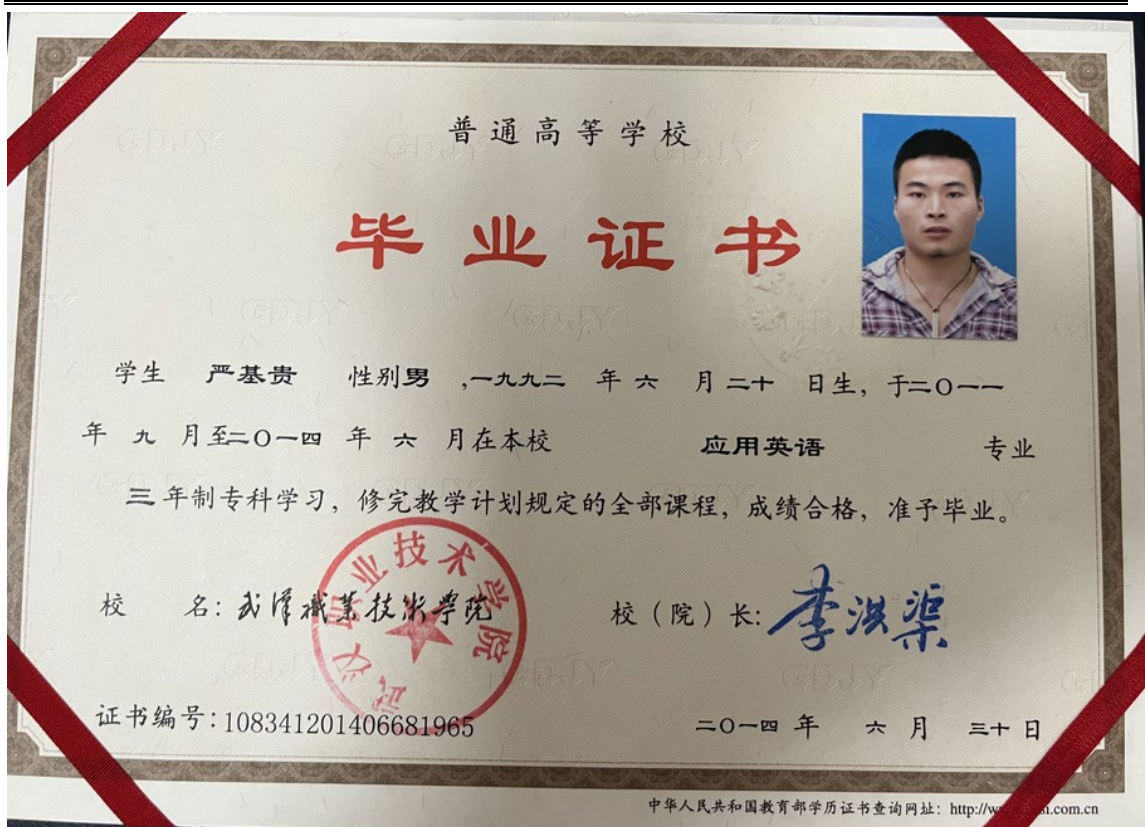 普通高等学校
毕业证书
学生 严基贵 性别男 ,一九九二 年 六 月 二十 日生, 于二O一一
年 九 月至二O一四 年 六 月在本校 应用英语 专业
三 年制专科学习, 修完教学计划规定的全部课程, 成绩合格, 准予毕业。
校 名: 武漢職業技術學院 校（院）长: 李洪渠
武汉职业技术学院
证书编号: 108341201406681965 二O一四 年 六 月 三十 日
中华人民共和国教育部学历证书查询网址: http://w .com.cn